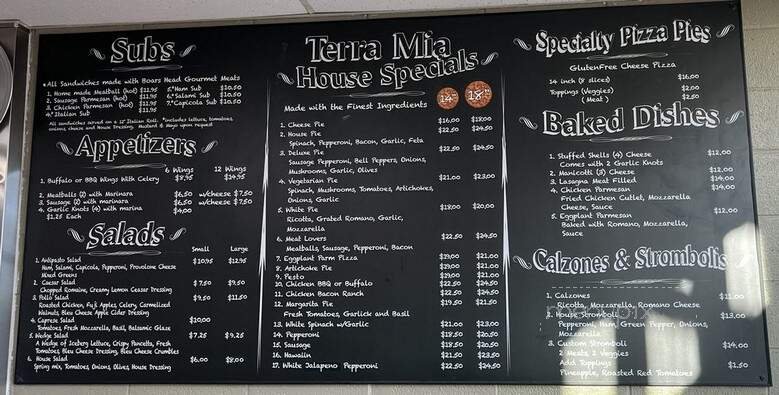 Subs
*All Sandwiches made with Boars Head Gourmet Meats
1. Home made Meatball (hot) $11.95
2. Sausage Parmesan (hot) $11.95
3. Chicken Parmesan (hot) $11.95
4.* Italian Sub $11.95
5.* Ham Sub $10.50
6.* Salami Sub $10.50
7.* Capicola Sub $10.50
All sandwiches served on a 12" Italian Roll. *includes lettuce, tomatoes,
onions cheese and house Dressing. Mustard & Mayo upon request
Appetizers
6 Wings 12 Wings
1. Buffalo or BBQ Wings With Celery $7.95 $14.95
2. Meatballs (2) with Marinara $6.50 w/cheese $7.50
3. Sausage (2) with marinara $6.50 w/cheese $7.50
4. Garlic Knots (4) with marina $4.00
$1.25 Each
Salads
Small Large
1. Antipasto Salad $10.95 $12.95
Ham, Salami, Capicola, Pepperoni, Provolone Cheese
Mixed Greens
2. Caesar Salad $7.50 $9.50
Chopped Romaine, Creamy Lemon Ceasar Dressing
3. Pollo Salad $9.50 $11.50
Roasted Chicken, Fuji Apples, Celery, Carmelized
Walnuts, Bleu Cheese Apple Cider Dressing
4. Caprese Salad $10.00
Tomatoes, Fresh Mozzarella, Basil, Balsamic Glaze
5. Wedge Salad $7.25 $9.25
A Wedge of Iceberg Lettuce, Crispy Pancetta, Fresh
Tomatoes, Bleu Cheese Dressing, Bleu Cheese Crumbles
6. House Salad $6.00 $8.00
Spring mix, Tomatoes, Onions, Olives, House Dressing
Terra Mia
House Specials
Made with the Finest Ingredients 14" 18"
1. Cheese Pie $16.00 $18.00
2. House Pie $22.50 $24.50
Spinach, Pepperoni, Bacon, Garlic, Feta
3. Deluxe Pie $22.50 $24.50
Sausage Pepperoni, Bell Peppers, Onions,
Mushrooms, Garlic, Olives
4. Vegetarian Pie $21.00 $23.00
Spinach, Mushrooms, Tomatoes, Artichokes,
Onions, Garlic
5. White Pie $18.00 $20.00
Ricotta, Grated Romano, Garlic,
Mozzarella
6. Meat Lovers $22.50 $24.50
Meatballs, Sausage, Pepperoni, Bacon
7. Eggplant Parm Pizza $19.00 $21.00
8. Artichoke Pie $19.00 $21.00
9. Pesto $19.00 $21.00
10. Chicken BBQ or Buffalo $22.50 $24.50
11. Chicken Bacon Ranch $22.50 $24.50
12. Margarita Pie $19.50 $21.50
Fresh Tomatoes, Garlick and Basil
13. White Spinach w/Garlic $21.00 $23.00
14. Pepperoni $18.50 $20.50
15. Sausage $18.50 $20.50
16. Hawaiin $21.50 $23.50
17. White Jalapeno Pepperoni $22.50 $24.50
Specialty Pizza Pies
GlutenFree Cheese Pizza
14 inch (8 slices) $16.00
Toppings (Veggies) $2.00
(Meat) $2.50
Baked Dishes
1. Stuffed Shells (4) Cheese $12.00
Comes with 2 Garlic Knots
2. Manicotti (3) Cheese $12.00
3. Lasagna Meat Filled $14.00
4. Chicken Parmesan $14.00
Fried Chicken Cutlet, Mozzarella
Cheese, Sauce
5. Eggplant Parmesan $12.00
Baked with Romano, Mozzarella,
Sauce
Calzones & Strombolis
1. Calzones $11.00
Ricotta, Mozzarella, Romano Cheese
2. House Stromboli $13.00
Pepperoni, Ham, Green Pepper, Onions,
Mozzarella
3. Custom Stromboli $14.00
2 Meats, 2 Veggies
Add Toppings $1.50
Pineapple, Roasted Red Tomatoes